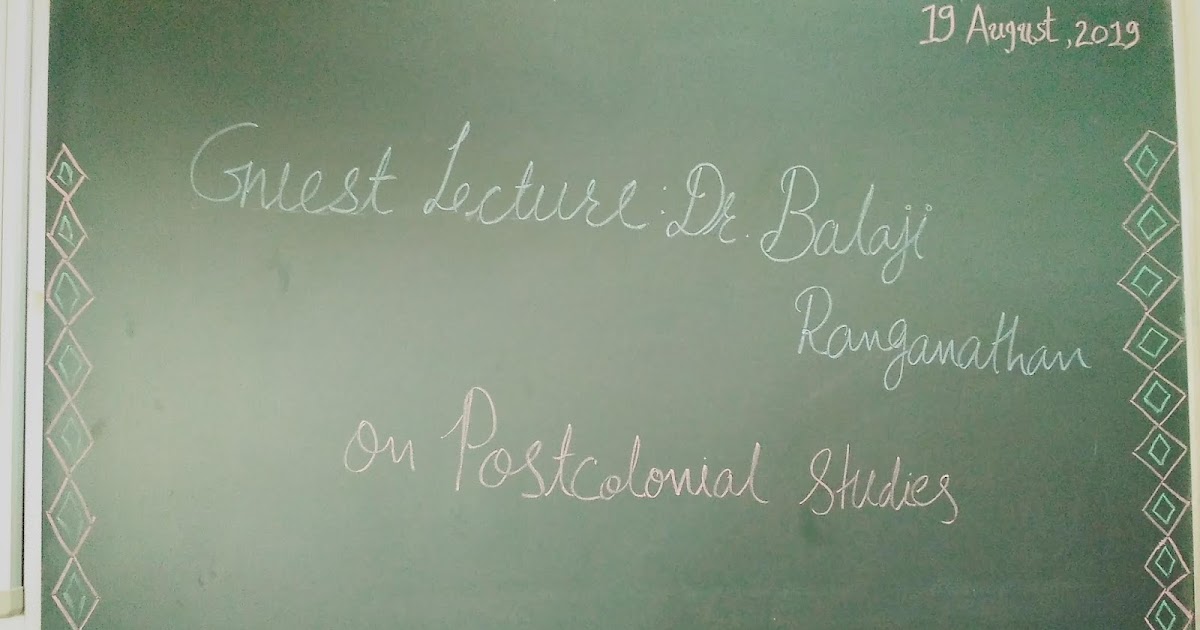 19 August, 2019
Guest Lecture: Dr. Balaji
Ranganathan
on Postcolonial Studies